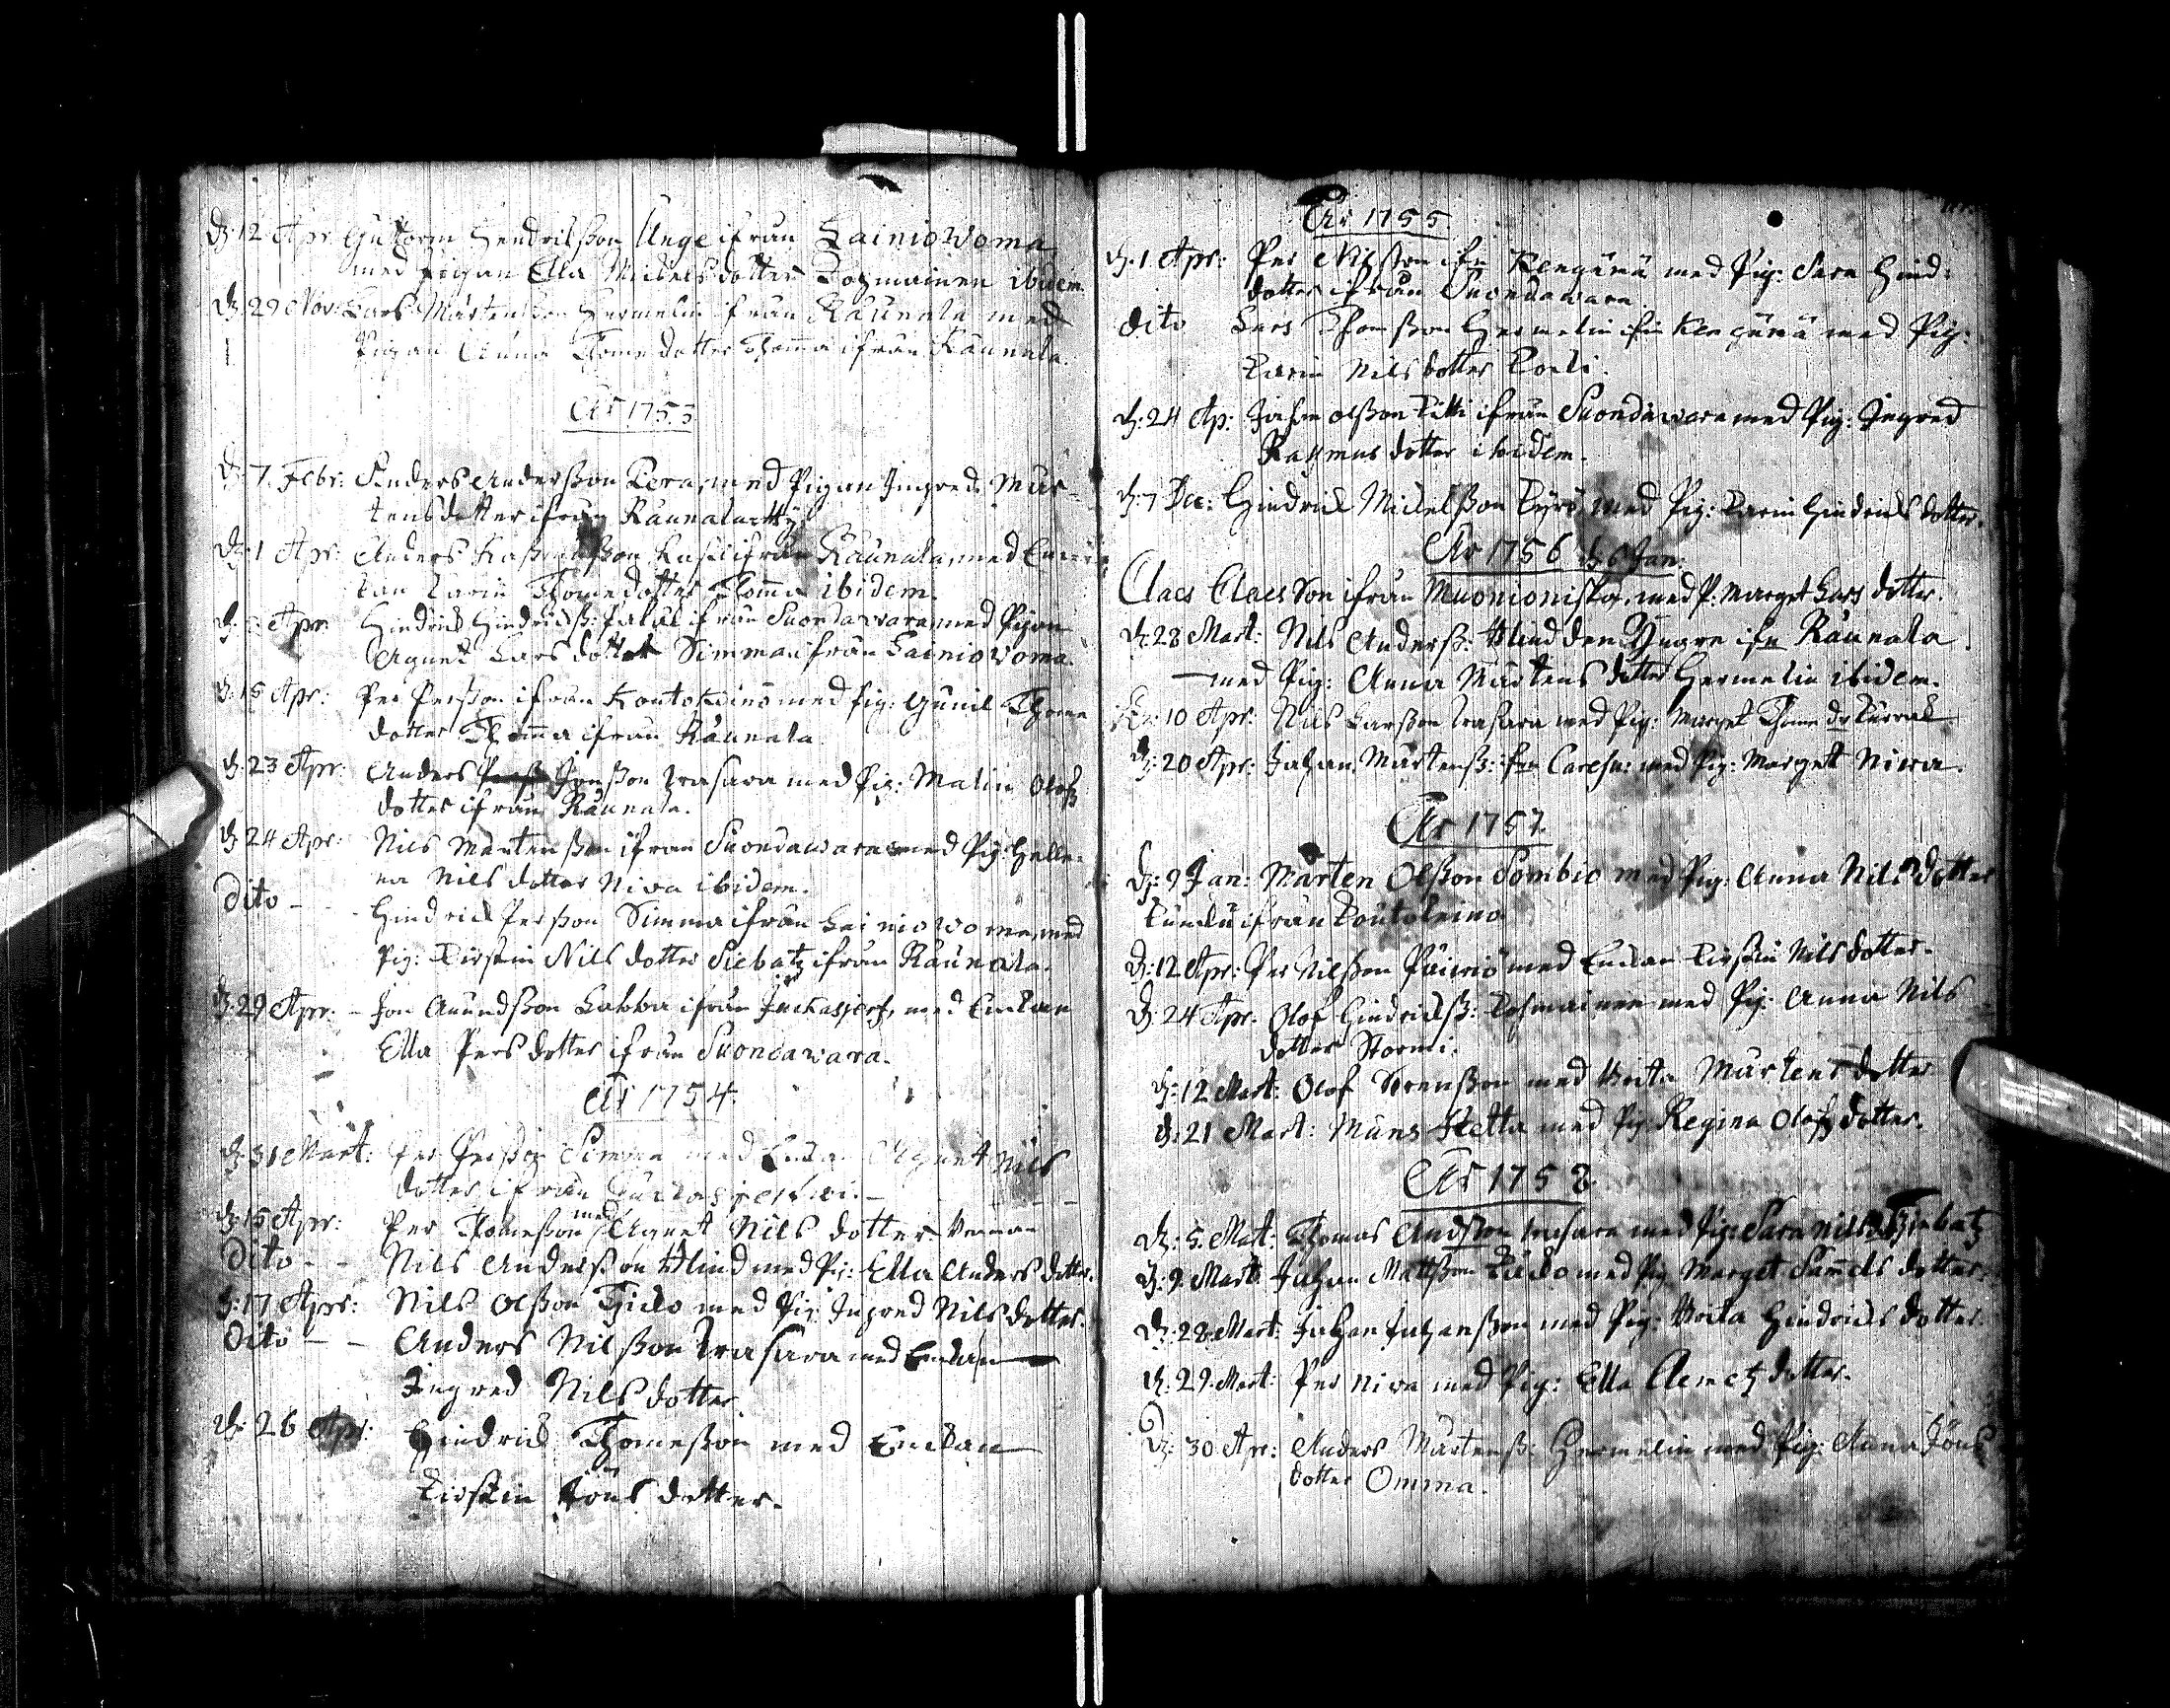 D: 12 Apr Guttorm Hendricsson Unge ifrån Lainiowoma
med pigan Ella Mickelsdotter Tosmainen ibidem.
D: 29 Nov: Lars Mårtensson Hermelin ifrån Raunala med
Pigan Anna Thomedotter Thomma ifrån Raunala.
År 1753
D: 7. Febr: Anders Andersson Pera, med Pigan Ingred Mår-
tensdotter ifrån
D: 1 Apr: Anders ifrån Raunala, med Enc
kan Karin Thomedotter Thomma ibidem.
D: Apr: Hindric Hindricss: ifrån Suondawara, med Pigan
Agnet Lars dotter Simma ifrån Lainiovoma.
D: 15 Apr: Per Persson ifrån Koutokeino med Pig: Gunil Thome
dotter Thomma ifrån Raunala
D: 23 Apr: Anders Jonsson Wasara med Pig: Malin Olofs
dotter ifrån Raunala.
D: 24 Apr: Nils Mårtensson ifrån Suondawara med Pig: Helle-
na Nils dotter Niva ibidem.
Dito - - Hindric Persson Simma ifrån Lainiowoma, med
Pig: Kirstin Nils dotter Siebatz ifrån Raunala.
D: 29 Apr: - Jon Amundsson Labba ifrån Juckasjerf, med Enckan
Ella Pers dotter ifrån Suondawara.
År 1754
D: 31 Mart: Per Persson Simma med Enckan Agnet Nils
dotter ifrån
D: 15 Apr: Per Thomesson med Agnet Nils dotter
Dito - - Nils Andersson Blind med Pi: Ella Anders dotter.
D: 17 Apr: Nils Olsson med Pig Ingred Nils dotter.
Dito - - Anders Nilsson Wasara med Enckan
Ingred Nils dotter
D: 26 Apr: Hindric Thomesson med Enckan
Kirstin Jöns dotter.
År 1755
D: 1 Apr: Per Nilsson ifn Kengämä med Pig: Sara Hind:
dotter ifrån Suondawara
Dito Lars Thomsson Hermelin ifn Kengämä med Pig:
Karin Nils dotter
D: 24 Ap: Johan Olsson Kitti ifrån Suondawara med Pig: Ingred
Rasmus dotter ibidem.
D: 7 Dec: Hindric Mickelsson Kyrö med Pig: Karin Hindrics dotter.
År 1756 D: 6 Jan:
Claes Claesson ifrån Muonioniska, med P: Marget Lars dotter.
D: 28 Mart: Nils Anderss: Blind den Yngre ifn Raunala
med Pig: Anna Mårtens dotter Hermelin ibidem.
D: 10 Apr: Nils Larsson Wasara med Pig: Marget Thome dr
D: 20 Apr: Johan Mårtenss: ifrn Caresu: med Pig: Marget Niva.
År 1757
D: 9 Jan: Mårten Olsson Sombio med Pig: Anna Nils dotter
ifrån Koutokeino
D: 12 Apr: Per Nilsson Päiviö med Enckan Kirstin Nils dotter.
D: 24 Apr: Olof Hindricss: Tosmainen med Pig: Anna Nils
dotter Stormi.
D: 12 Mart: Olof Svensson med Brita Mårtens dotter
D: 21 Mart: Måns Ketta med Pig Regina Olofs dotter.
År 1758
D: 5. Mart: Thomas Andsson Wasara med Pig: Sara Nils dr Siebatz
D: 9. Mart: Johan Mattsson med Pig Marget Samels dotter.
D: 28. Mart: Johan Johansson med Pig: Brita Hindrics dotter.
D: 29. Mart: Per Niva med Pig: Ella Clemetz dotter.
D: 30 Apr: Anders Mårtenss: Hermelin med Pig: Anna Jöns
dotter Omma.